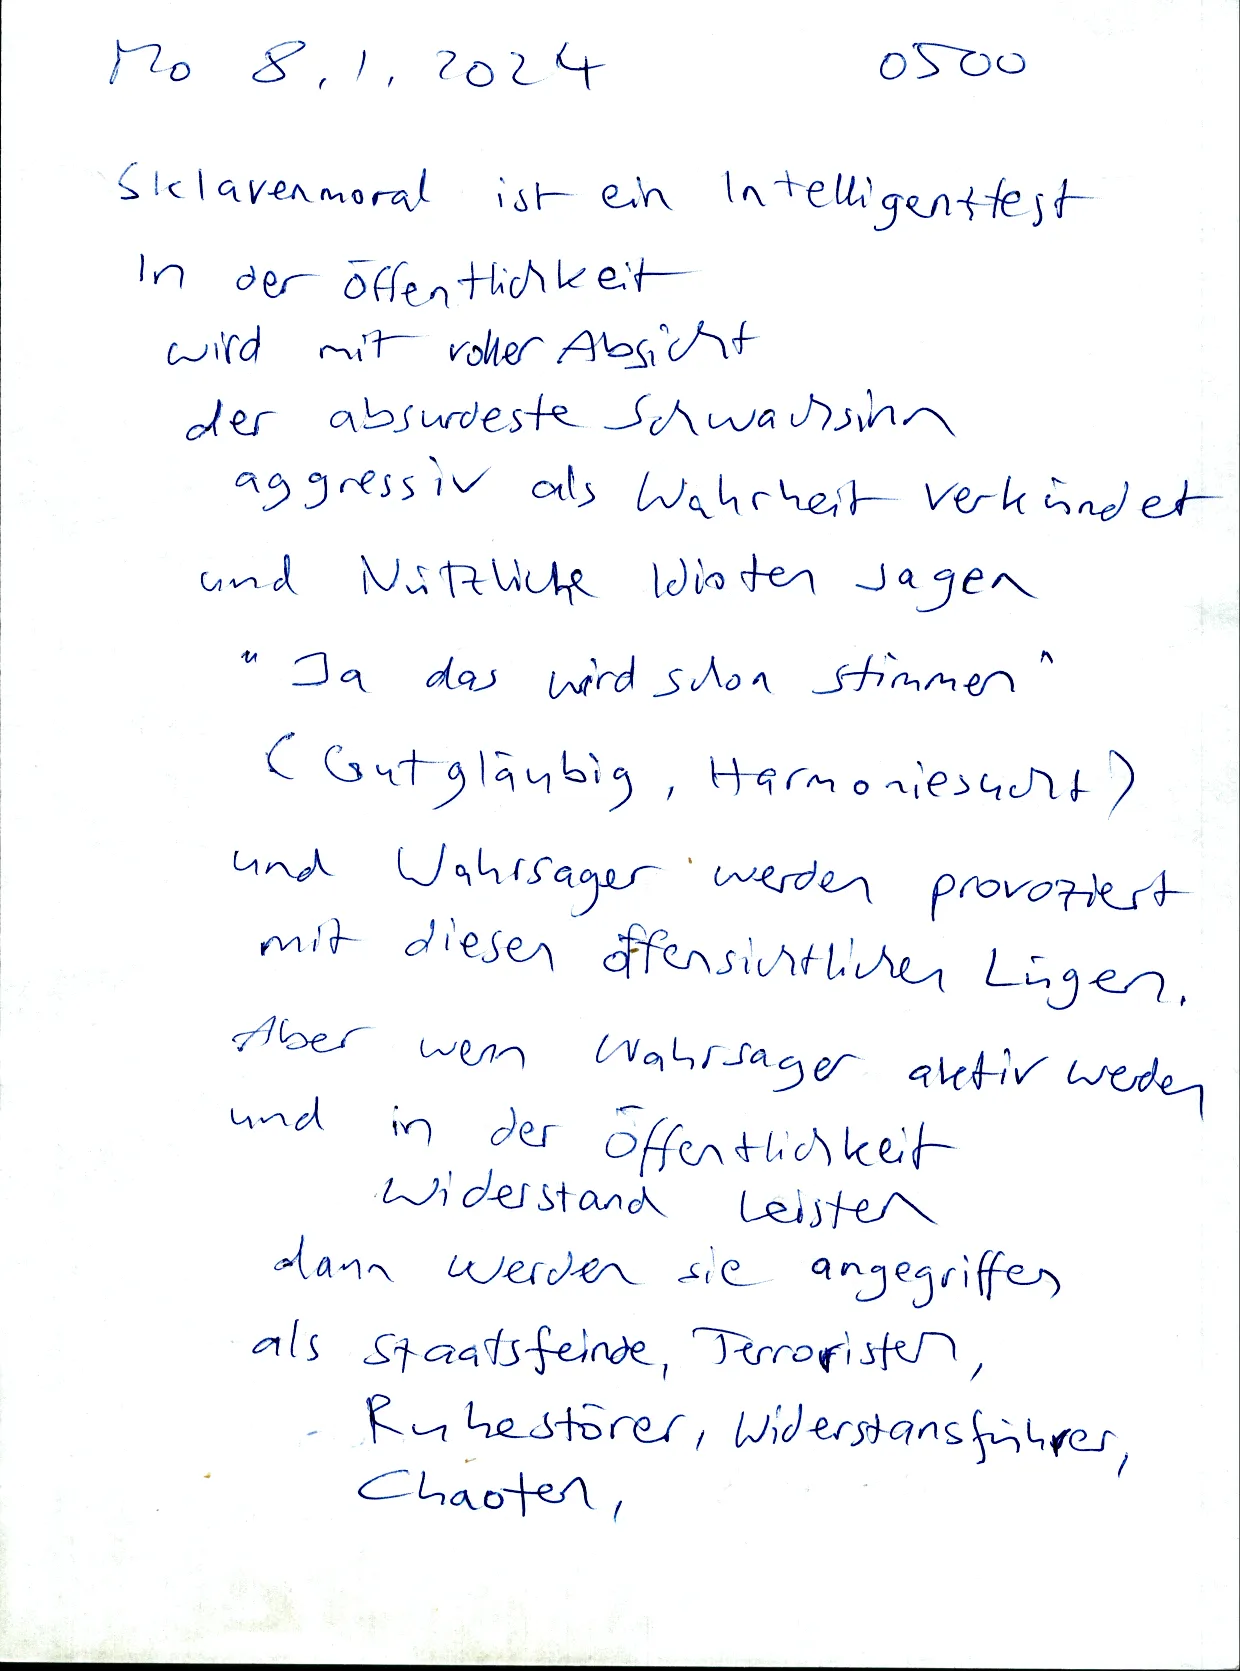 Mo 8.1.2024 0500
Sklavenmoral ist ein Intelligenttest
In der Öffentlichkeit
wird mit voller Absicht
der absurdeste Schwachsinn
aggressiv als Wahrheit verkündet
und Nützliche Idioten sagen
"Ja das wird schon stimmen"
(Gutgläubig, Harmoniesucht)
und Wahrsager werden provoziert
mit diesen offensichtlichen Lügen.
Aber wenn Wahrsager aktiv werden
und in der Öffentlichkeit
Widerstand leisten
dann werden sie angegriffen
als Staatsfeinde, Terroristen,
Ruhestörer, Widerstansführer,
Chaoten,